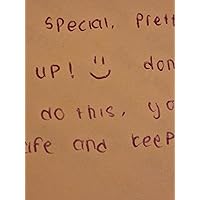 special, prett
up! :) don
do this, yo
ife and keep